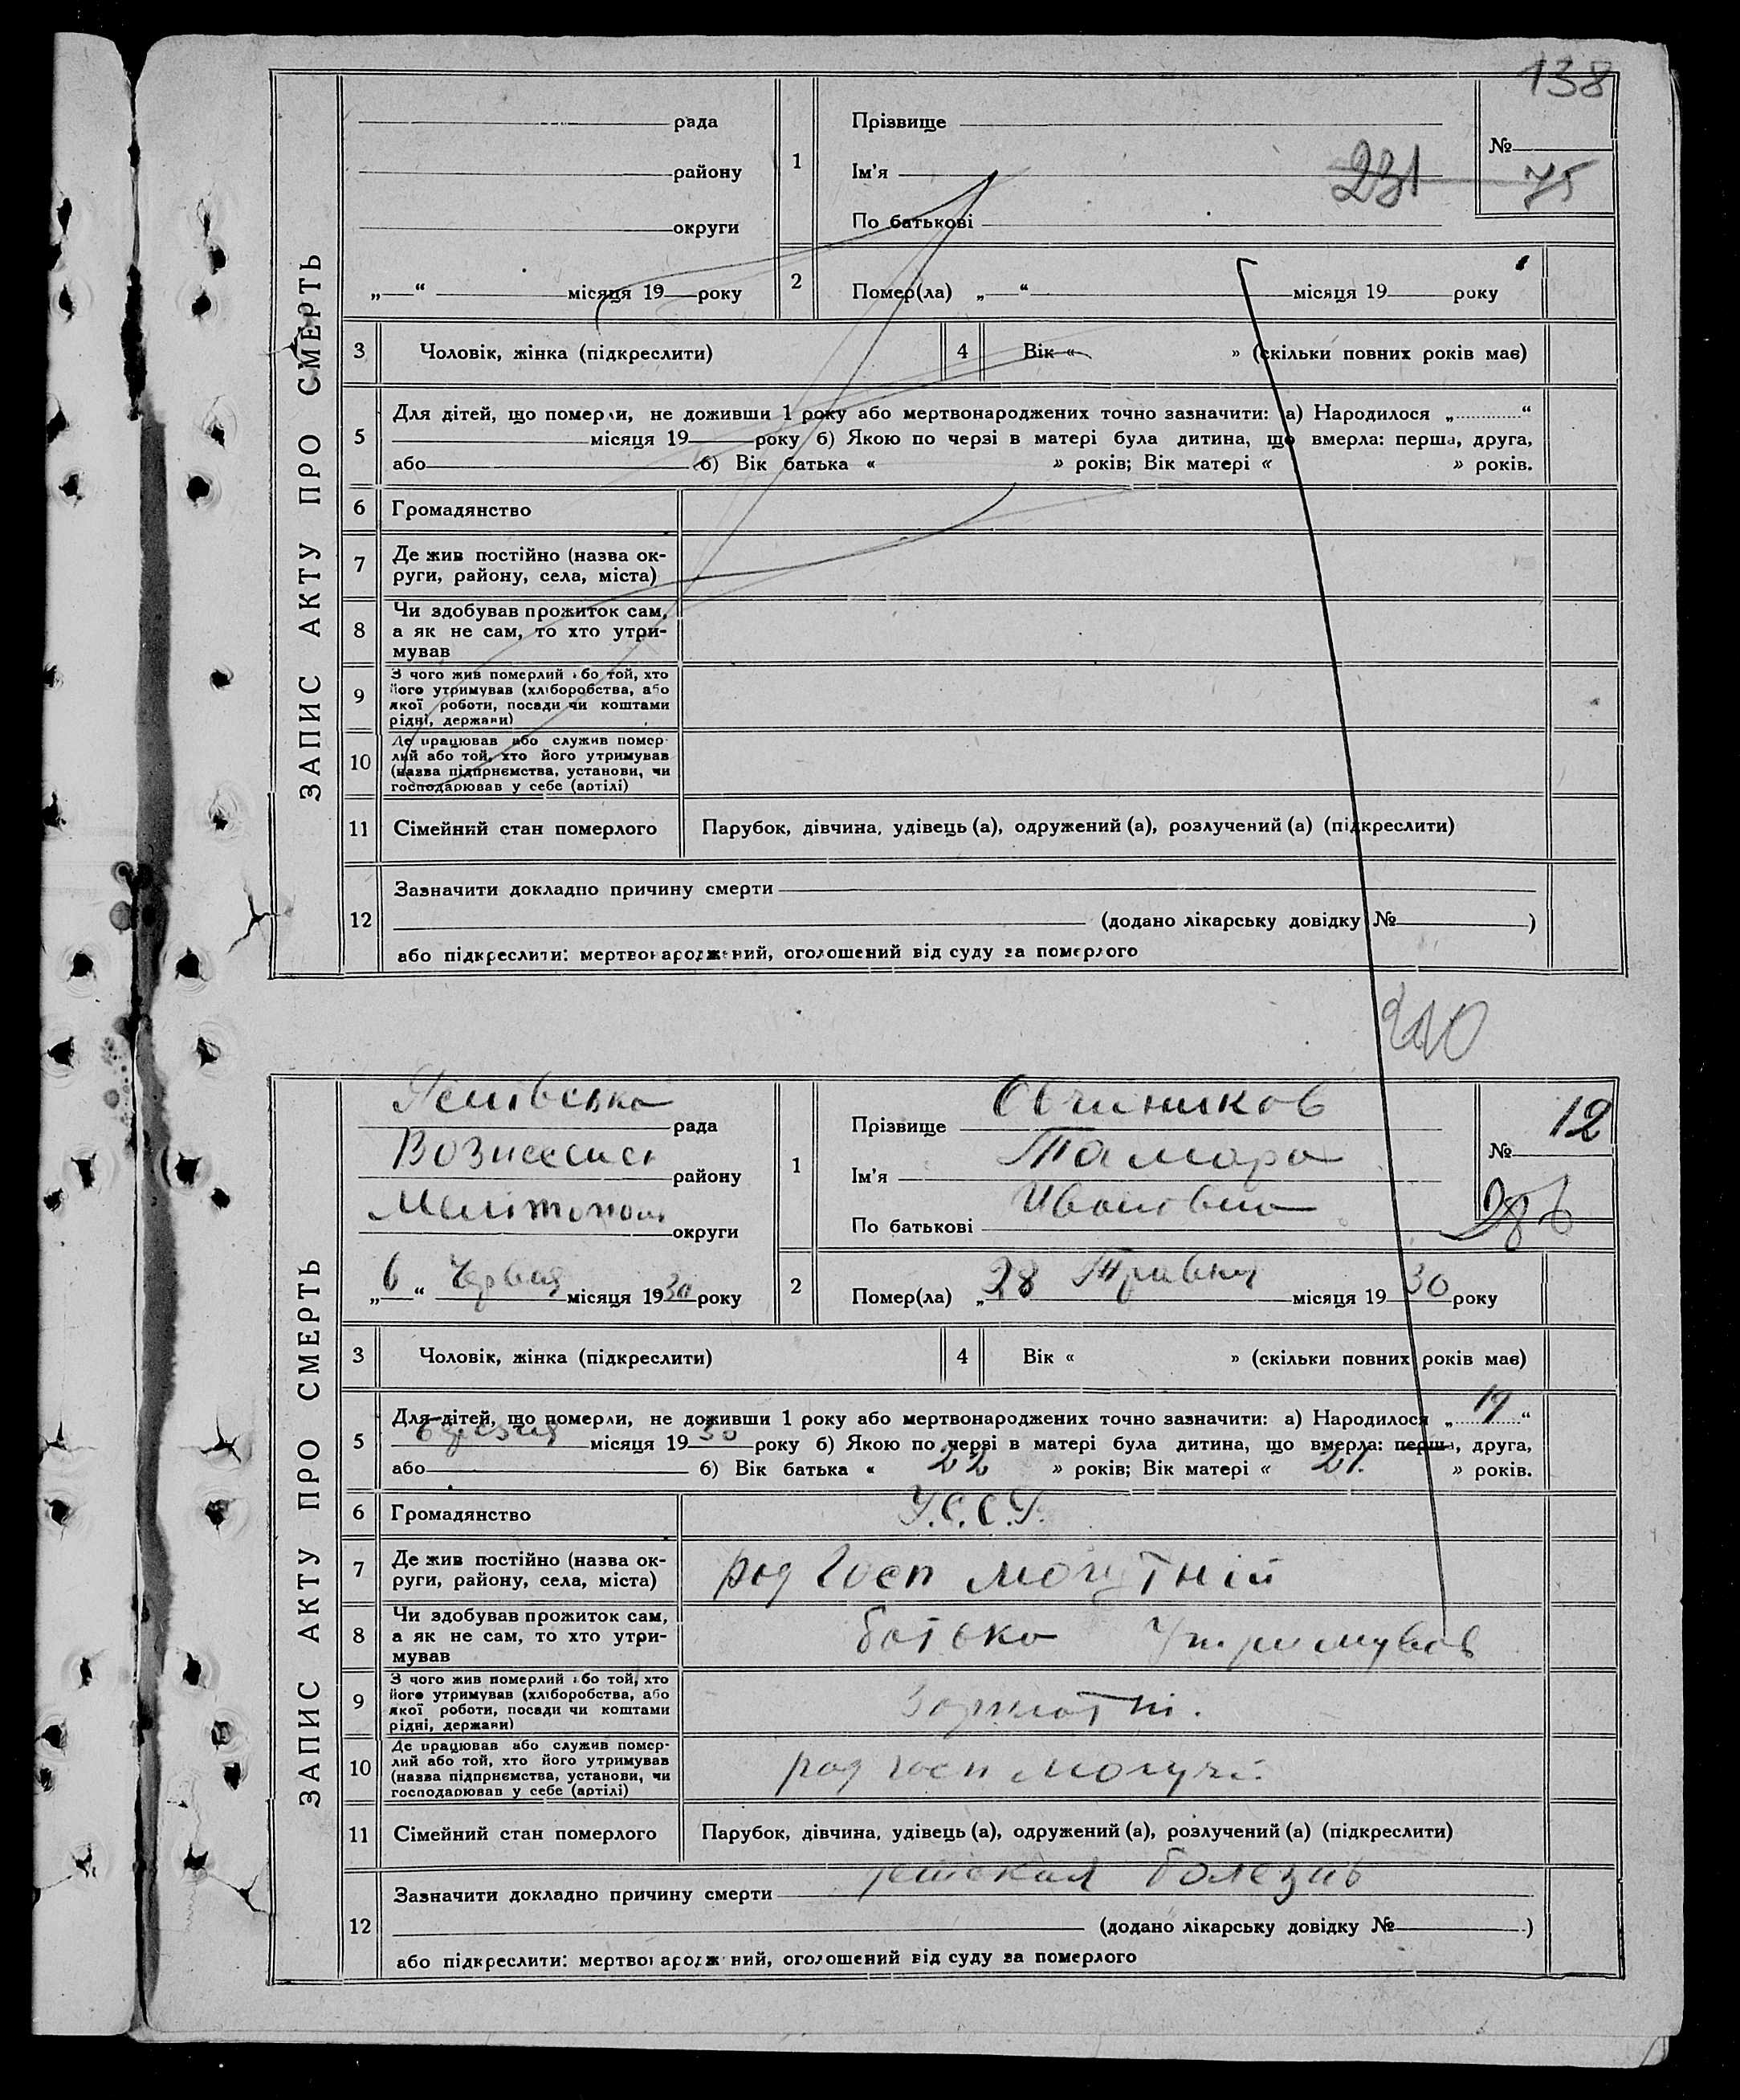 138
ЗАПИС АКТУ ПРО СМЕРТЬ
рада
району
округи
„ “ місяця 19 року
1
Прізвище
Ім'я
По батькові
231
№
75
2
Помер(ла) „ “ місяця 19 року
3
Чоловік, жінка (підкреслити)
4
Вік « » (скільки повних років має)
5
Для дітей, що померли, не доживши 1 року або мертвонароджених точно зазначити: а) Народилося „ “
місяця 19 року б) Якою по черзі в матері була дитина, що вмерла: перша, друга,
або б) Вік батька « » років; Вік матері « » років.
6
Громадянство
7
Де жив постійно (назва ок-
руги, району, села, міста)
8
Чи здобував прожиток сам,
а як не сам, то хто утри-
мував
9
З чого жив померлий або той, хто
його утримував (хліборобства, або
якої роботи, посади чи коштами
рідні, держави)
10
Де працював або служив помер-
лий або той, хто його утримував
(назва підприємства, установи, чи
господарював у себе (артілі)
11
Сімейний стан померлого
Парубок, дівчина, удівець (а), одружений (а), розлучений (а) (підкреслити)
12
Зазначити докладно причину смерти
(додано лікарську довідку № )
або підкреслити: мертвонароджений, оголошений від суду за померлого
210
ЗАПИС АКТУ ПРО СМЕРТЬ
рада
району
округи
„6“ Червня місяця 1930 року
1
Прізвище Овчиников
Ім'я Тамара
По батькові Ивановна
№ 12
286
2
Помер(ла) „28 Травня місяця 1930 року
3
Чоловік, жінка (підкреслити)
4
Вік « » (скільки повних років має)
5
Для дітей, що померли, не доживши 1 року або мертвонароджених точно зазначити: а) Народилося „19“
місяця 1930 року б) Якою по черзі в матері була дитина, що вмерла: перша, друга,
або б) Вік батька « 22 » років; Вік матері « 21. » років.
6
Громадянство
У.С.С.Р.
7
Де жив постійно (назва ок-
руги, району, села, міста)
рад госп могутній
8
Чи здобував прожиток сам,
а як не сам, то хто утри-
мував
батько утримував
9
З чого жив померлий або той, хто
його утримував (хліборобства, або
якої роботи, посади чи коштами
рідні, держави)
10
Де працював або служив помер-
лий або той, хто його утримував
(назва підприємства, установи, чи
господарював у себе (артілі)
рад госп
11
Сімейний стан померлого
Парубок, дівчина, удівець (а), одружений (а), розлучений (а) (підкреслити)
12
Зазначити докладно причину смерти детская болезнь
(додано лікарську довідку № )
або підкреслити: мертвонароджений, оголошений від суду за померлого